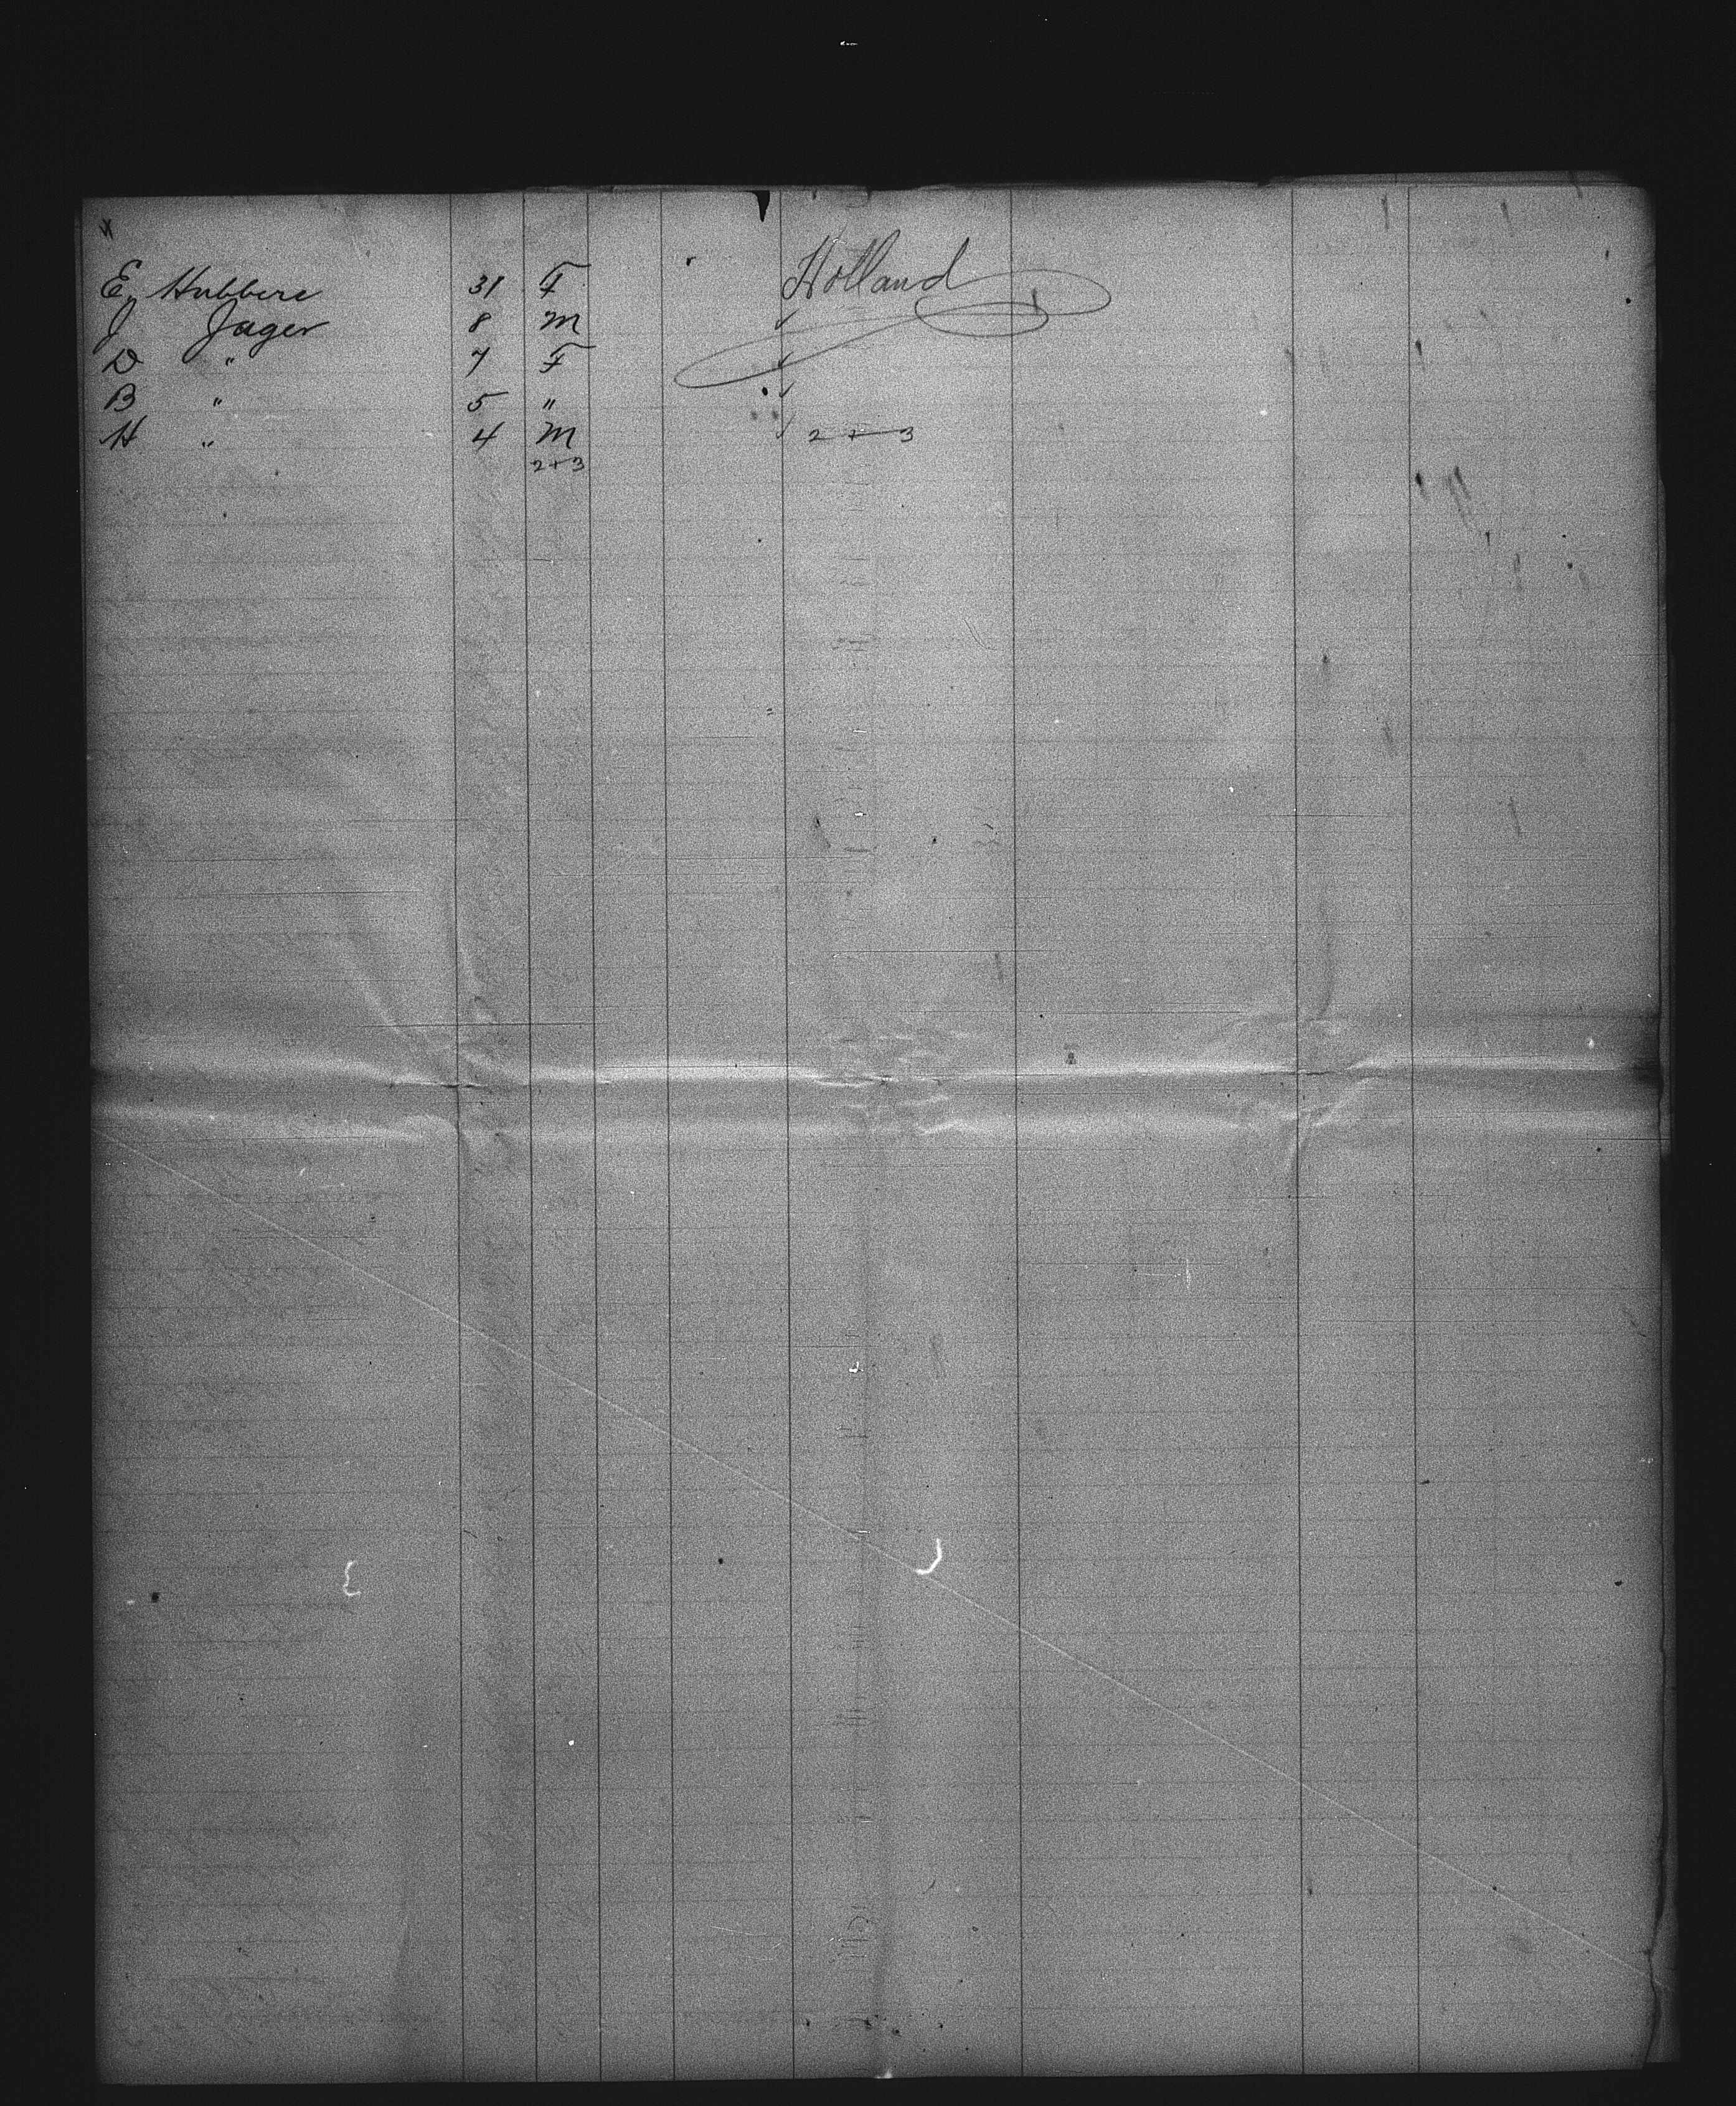 E Hubbere 31 F Holland
J Jager 8 M ✓
D " 7 F ✓
B " 5 " ✓
H " 4 M ✓ 2 + 3
2+3